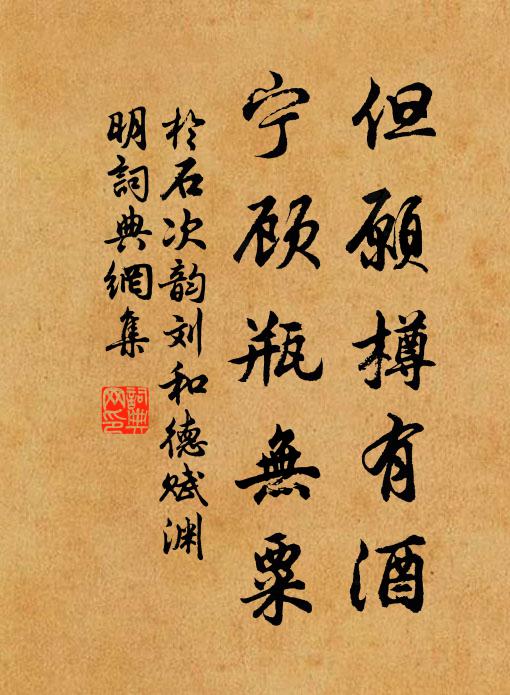 但願樽有酒
宁顾瓶無粟
於石次韵刘和德赋渊
明詞典網集
詞典网印